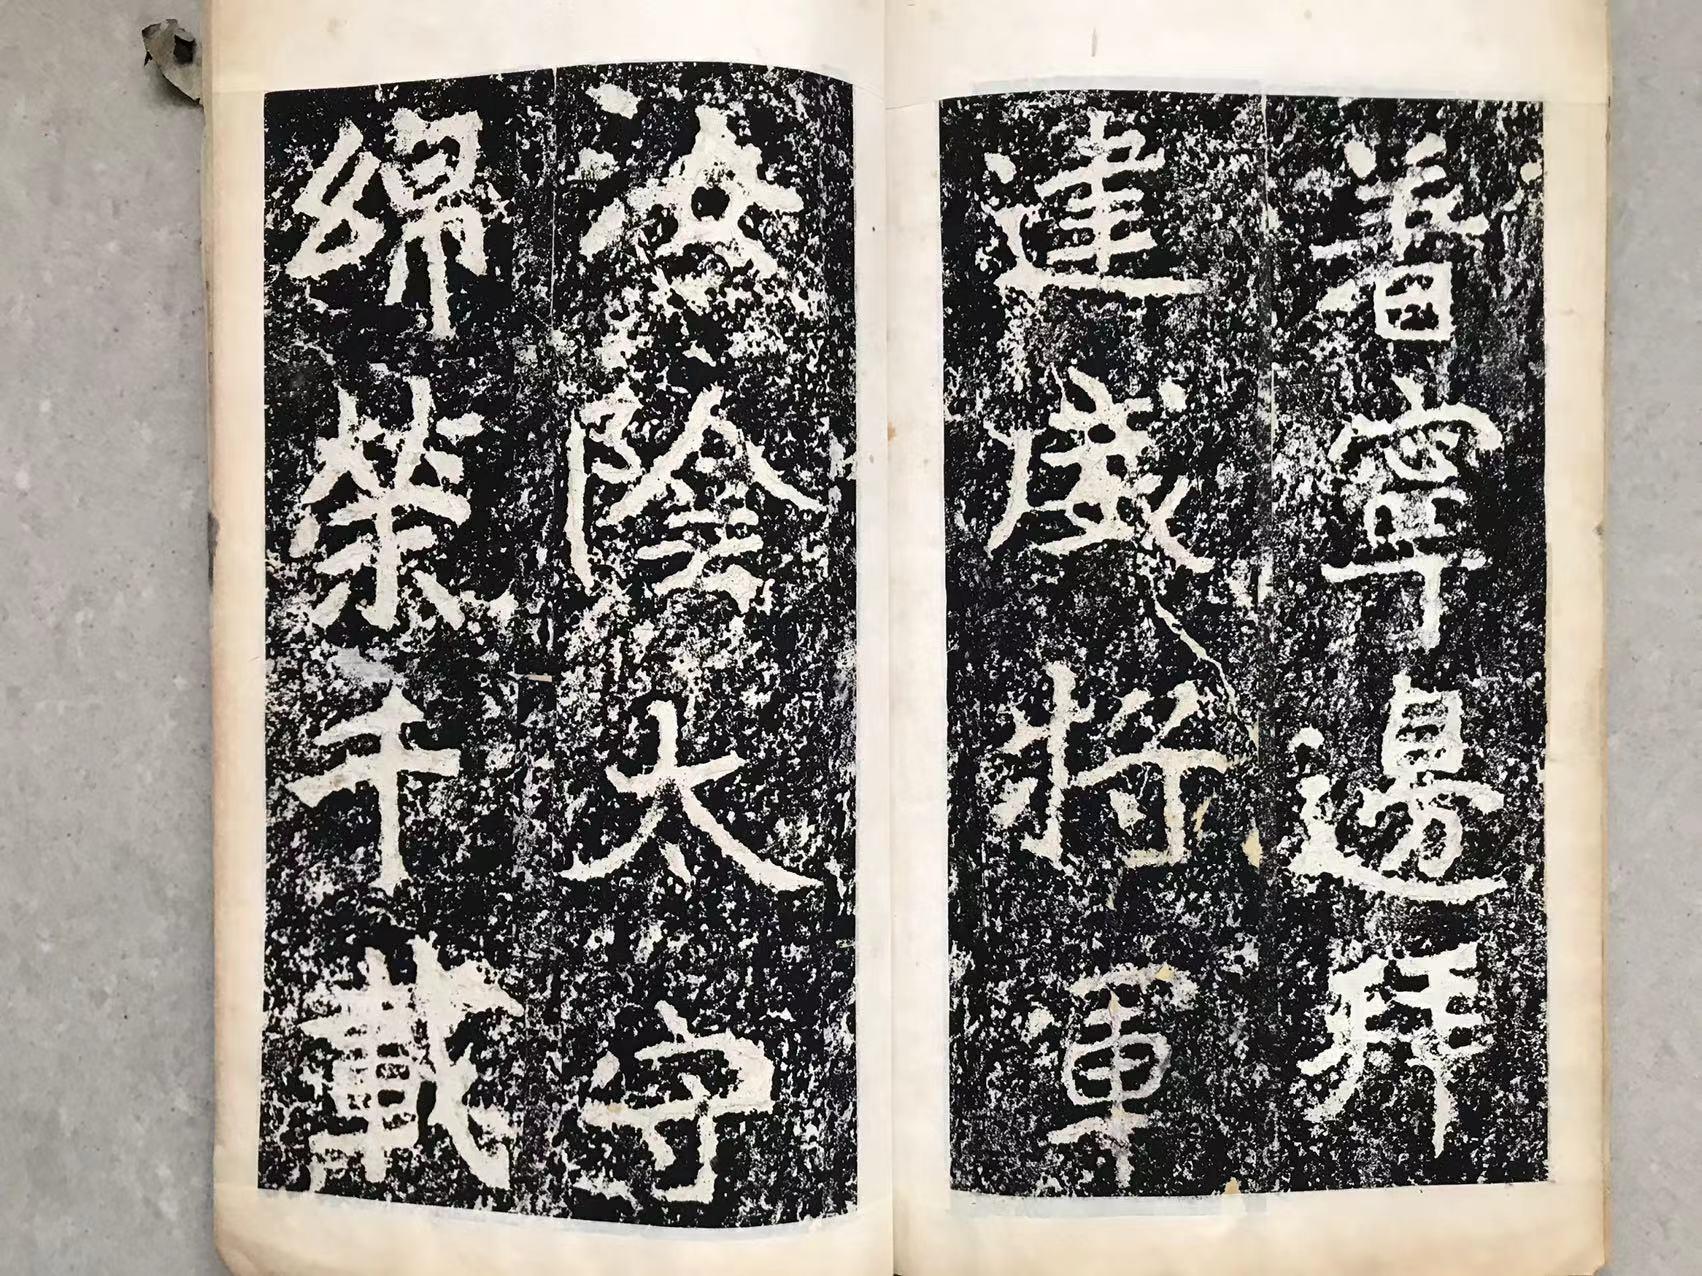 普寧邊拜
建威將軍
汝陰太守
綿榮千載